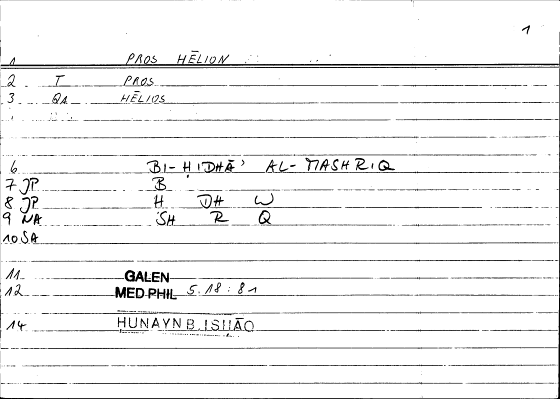 1
1 PROS HĒLION
2 T PROS
3 QA HĒLIOS
6 BI-ḤIDHĀ' AL-MASHRIQ
7 JP B
8 JP Ḥ DH W
9 NA SH R Q
10 SA
11 GALEN
12 MED.PHIL 5.18:81
14 ḤUNAYN B. ISḤĀQ